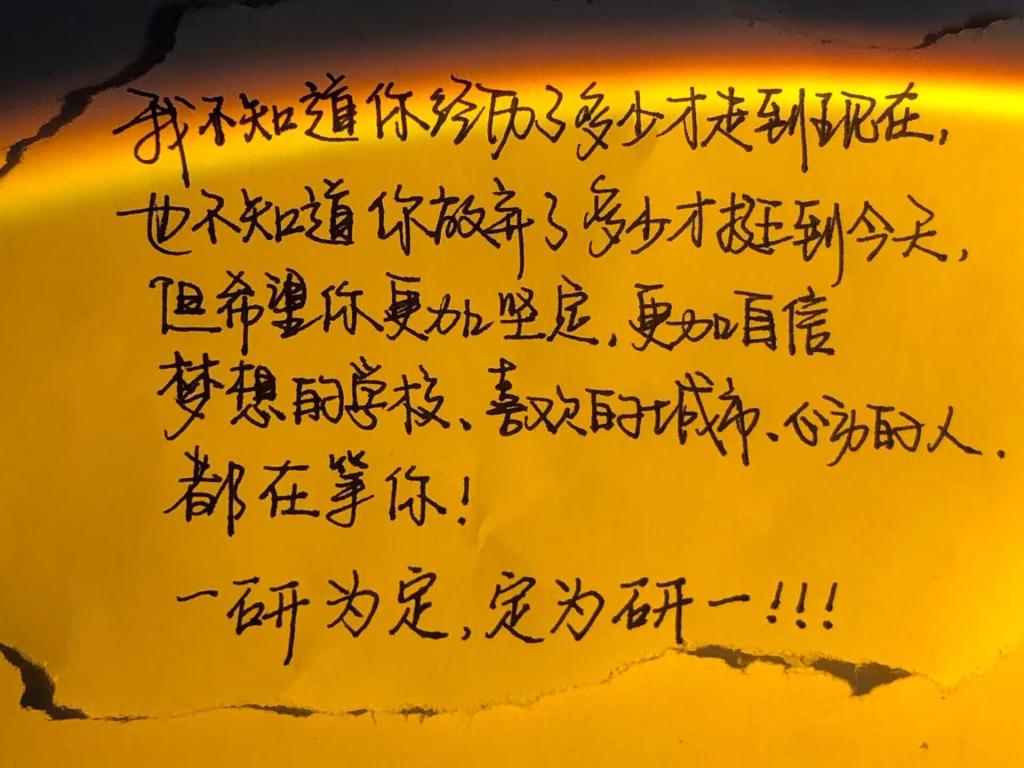 我不知道你经历了多少才走到现在,
也不知道你放弃了多少才挺到今天,
但希望你更加坚定,更加自信
梦想的学校、喜欢的城市、心动的人.
都在等你!
一研为定,定为研一!!!